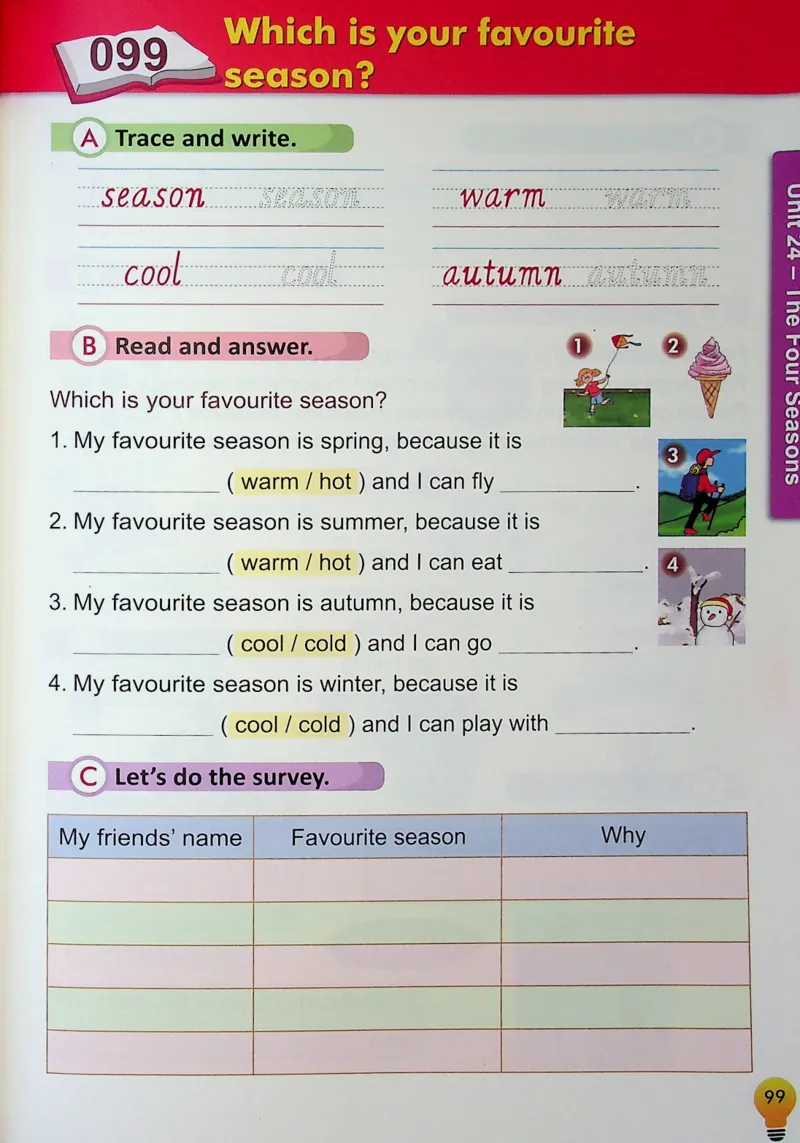 099
Which is your favourite
season?
A Trace and write.
season season
warm warm
cool cool
autumn autumn
B Read and answer.
1
2
Which is your favourite season?
1. My favourite season is spring, because it is
____________ ( warm / hot ) and I can fly ___________.
3
2. My favourite season is summer, because it is
____________ ( warm / hot ) and I can eat ___________.
4
3. My favourite season is autumn, because it is
____________ ( cool / cold ) and I can go ___________.
4. My favourite season is winter, because it is
____________ ( cool / cold ) and I can play with ___________.
C Let's do the survey.
My friends' name Favourite season Why
Unit 24 – The Four Seasons
99